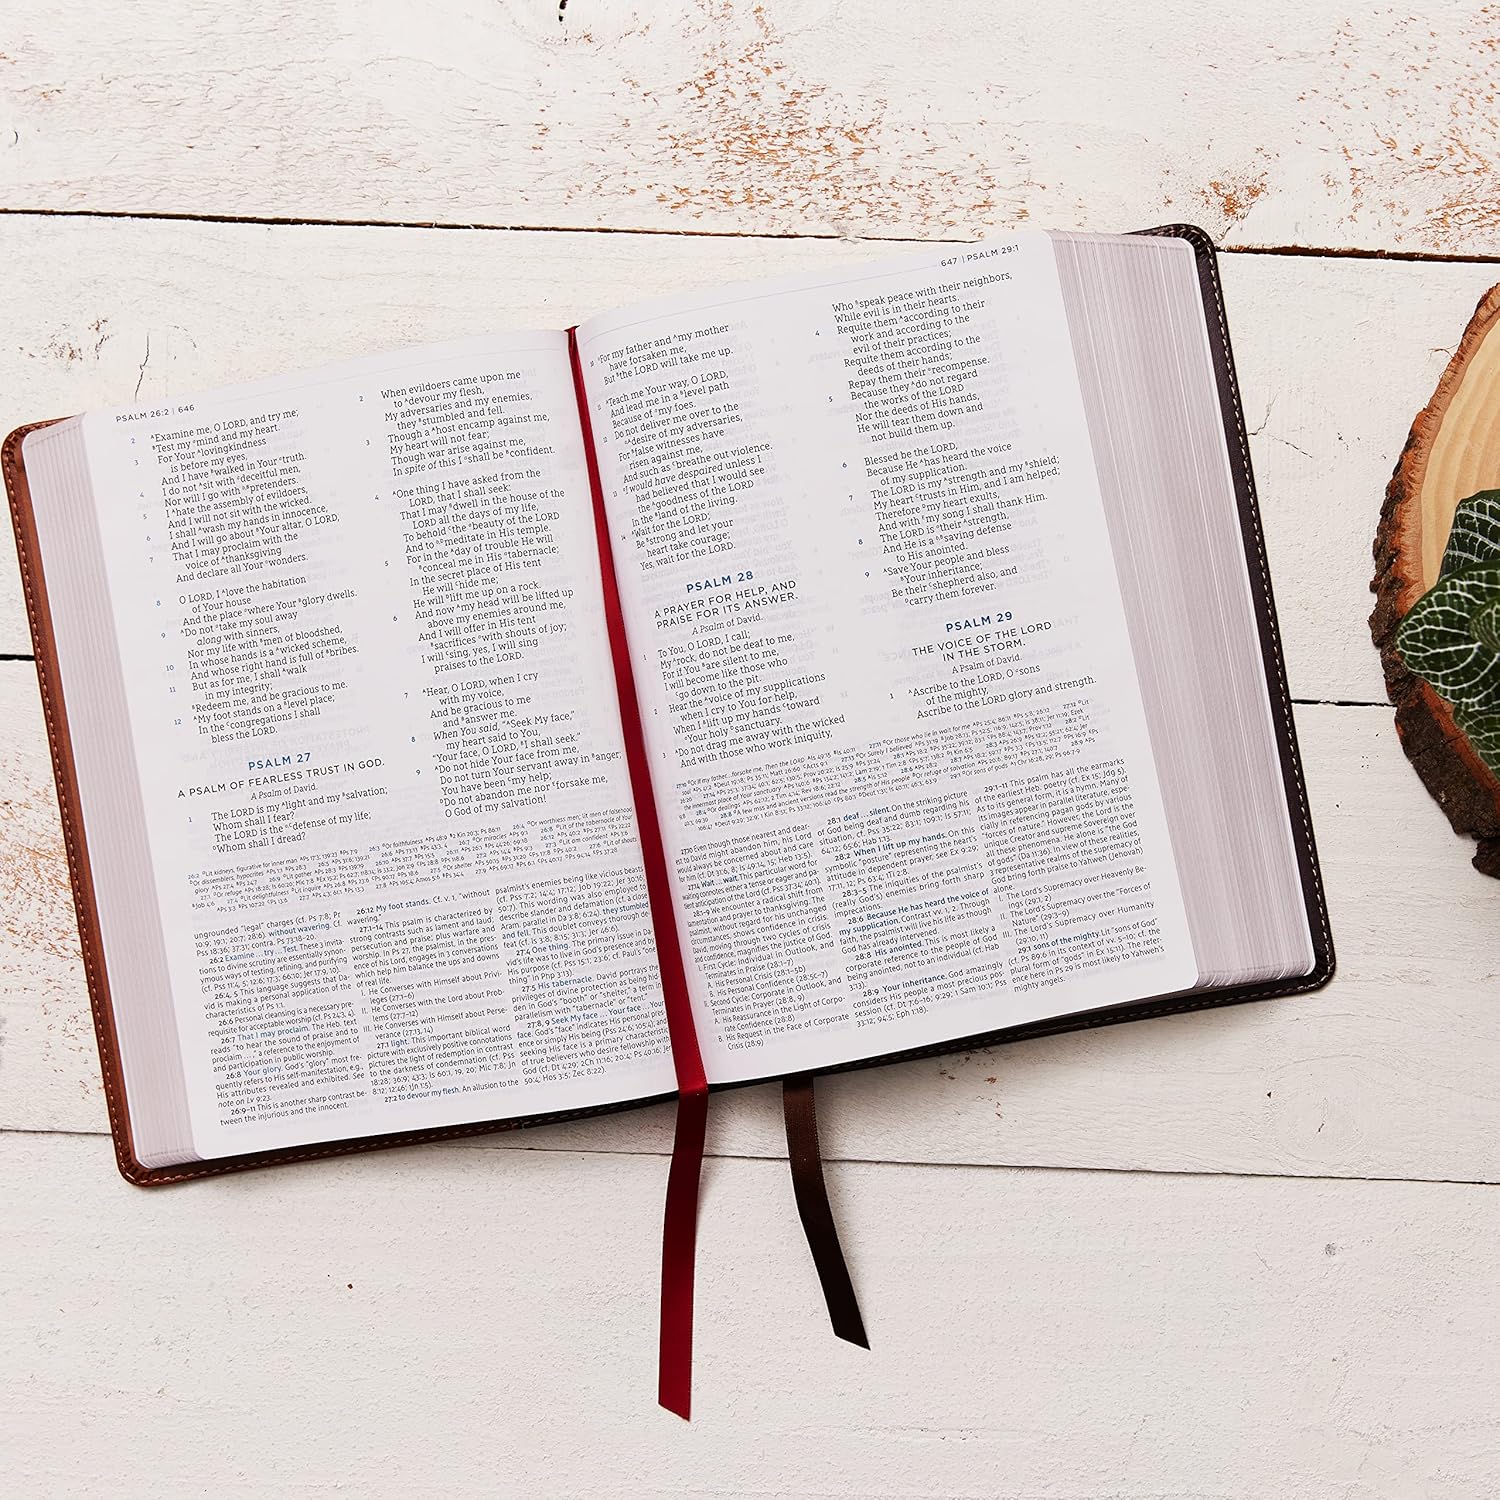 PSALM 26:2 | 646
2 Examine me, O LORD, and try me;
Test my mind and my heart.
3 For Your lovingkindness
is before my eyes,
And I have walked in Your truth.
4 I do not sit with deceitful men,
Nor will I go with pretenders.
5 I hate the assembly of evildoers,
And I will not sit with the wicked.
6 I shall wash my hands in innocence,
And I will go about Your altar, O LORD,
7 That I may proclaim with the
voice of thanksgiving
And declare all Your wonders.
8 O LORD, I love the habitation
of Your house
And the place where Your glory dwells.
9 Do not take my soul away
along with sinners,
Nor my life with men of bloodshed,
10 In whose hands is a wicked scheme,
And whose right hand is full of bribes.
11 But as for me, I shall walk
in my integrity;
Redeem me, and be gracious to me.
12 My foot stands on a level place;
In the congregations I shall
bless the LORD.
PSALM 27
A PSALM OF FEARLESS TRUST IN GOD.
A Psalm of David.
1 The LORD is my light and my salvation;
Whom shall I fear?
The LORD is the defense of my life;
Whom shall I dread?
2 When evildoers came upon me
to devour my flesh,
My adversaries and my enemies,
they stumbled and fell.
3 Though a host encamp against me,
My heart will not fear;
Though war arise against me,
In spite of this I shall be confident.
4 One thing I have asked from the
LORD, that I shall seek:
That I may dwell in the house of the
LORD all the days of my life,
To behold the beauty of the LORD
And to meditate in His temple.
5 For in the day of trouble He will
conceal me in His tabernacle;
In the secret place of His tent
He will hide me;
He will lift me up on a rock.
6 And now my head will be lifted up
above my enemies around me,
And I will offer in His tent
sacrifices with shouts of joy;
I will sing, yes, I will sing
praises to the LORD.
7 Hear, O LORD, when I cry
with my voice,
And be gracious to me
and answer me.
8 When You said, "Seek My face,"
my heart said to You,
"Your face, O LORD, I shall seek."
9 Do not hide Your face from me,
Do not turn Your servant away in anger;
You have been my help;
Do not abandon me nor forsake me,
O God of my salvation!
ungrounded "legal" charges (cf. Ps 7:8;
26:2 Examine . . . try . . . Test. These
26:4, 5 This language suggests that Da-
vid is making a personal application of
the characteristics of Ps 1:1.
26:6 Personal cleansing is a necessary pre-
requisite for acceptable worship (cf. Ps 24:3, 4).
26:7 That I may proclaim. The Heb. text
reads "to hear the sound of praise and to
proclaim . . . ," a reference to the enjoyment of
and participation in public worship.
26:8 Your glory. God's "glory" most fre-
quently refers to His self-manifestation, e.g.,
His attributes revealed and exhibited. See
note on Lv 9:23.
26:9–11 This is another sharp contrast be-
tween the injurious and the innocent.
26:12 My foot stands. Cf. v. 1, "without
wavering."
27:1–14 This psalm is characterized by
strong contrasts such as lament and laud;
persecution and praise; plus warfare and
worship. In Ps 27, the psalmist, in the pres-
ence of his Lord, engages in 3 conversations
which help him balance the ups and downs
of real life.
I. He Converses with Himself about Privi-
leges (27:1–6)
II. He Converses with the Lord about Prob-
lems (27:7–12)
III. He Converses with Himself about Perse-
verance (27:13, 14)
27:1 light. This important biblical word
picture with exclusively positive connotations
pictures the light of redemption in contrast
to the darkness of condemnation (cf. Pss
27:2 to devour my flesh. An allusion to the
psalmist's enemies being like vicious beasts
27:4 One thing. The primary issue in Da-
vid's life was to live in God's presence and by
27:5 His tabernacle. David portrays the
privileges of divine protection as being hid-
den in God's "booth" or "shelter," a term in
parallelism with "tabernacle" or "tent."
27:8, 9 Seek My face . . . Your face . . . Your
face. God's "face" indicates His personal pres-
seeking His face is a primary characteristic
of true believers who desire fellowship with
647 | PSALM 29:1
10 For my father and my mother
have forsaken me,
But the LORD will take me up.
11 Teach me Your way, O LORD,
And lead me in a level path
Because of my foes.
12 Do not deliver me over to the
desire of my adversaries,
For false witnesses have
risen against me,
And such as breathe out violence.
13 I would have despaired unless I
had believed that I would see
the goodness of the LORD
In the land of the living.
14 Wait for the LORD;
Be strong and let your
heart take courage;
Yes, wait for the LORD.
PSALM 28
A PRAYER FOR HELP, AND
PRAISE FOR ITS ANSWER.
A Psalm of David.
1 To You, O LORD, I call;
My rock, do not be deaf to me,
For if You are silent to me,
I will become like those who
go down to the pit.
2 Hear the voice of my supplications
when I cry to You for help,
When I lift up my hands toward
Your holy sanctuary.
3 Do not drag me away with the wicked
And with those who work iniquity,
Who speak peace with their neighbors,
While evil is in their hearts.
4 Requite them according to their
work and according to the
evil of their practices;
Requite them according to the
deeds of their hands;
Repay them their recompense.
5 Because they do not regard
the works of the LORD
Nor the deeds of His hands,
He will tear them down and
not build them up.
6 Blessed be the LORD,
Because He has heard the voice
of my supplication.
7 The LORD is my strength and my shield;
My heart trusts in Him, and I am helped;
Therefore my heart exults,
And with my song I shall thank Him.
8 The LORD is their strength,
And He is a saving defense
to His anointed.
9 Save Your people and bless
Your inheritance;
Be their shepherd also, and
carry them forever.
PSALM 29
THE VOICE OF THE LORD
IN THE STORM.
A Psalm of David.
1 Ascribe to the LORD, O sons
of the mighty,
Ascribe to the LORD glory and strength.
27:10 Even though those nearest and dear-
est to David might abandon him, his Lord
would always be concerned about and care
27:14 Wait . . . wait. This particular word for
waiting connotes either a tense or eager and pa-
28:1–9 We encounter a radical shift from
lamentation and prayer to thanksgiving. The
psalmist, without regard for his unchanged
circumstances, shows confidence in crisis.
David, moving through two cycles of crisis
and confidence, magnifies the justice of God.
I. First Cycle: Individual in Outlook, and
Terminates in Praise (28:1–7)
A. His Personal Crisis (28:1–5b)
B. His Personal Confidence (28:5c–7)
II. Second Cycle: Corporate in Outlook, and
Terminates in Prayer (28:8, 9)
A. His Reassurance in the Light of Corpo-
rate Confidence (28:8)
B. His Request in the Face of Corporate
Crisis (28:9)
28:1 deaf . . . silent. On the striking picture
of God being deaf and dumb regarding his
28:2 When I lift up my hands. On this
symbolic "posture" representing the heart's
attitude in dependent prayer, see Ex 9:29;
28:3–5 The iniquities of the psalmist's
(really God's) enemies bring forth that
imprecations.
28:6 Because He has heard the voice of
my supplication. Contrast vv. 1, 2. Through
faith, the psalmist will live his life as though
God has already intervened.
28:8 His anointed. This is most likely a
corporate reference to the people of God
being anointed, not to an individual (cf. Hab
3:13).
28:9 Your inheritance. God amazingly
considers His people a most precious pos-
29:1–11 This psalm has all the earmarks
of the earliest Heb. poetry (cf. Ex 15; Jdg 5).
As to its general form, it is a hymn. Many of
its images appear in parallel literature, espe-
cially in referencing pagan gods by various
"forces of nature." However, the LORD is the
unique Creator and supreme Sovereign over
all these phenomena. He alone is "the God
of gods" (Da 11:36). In view of these realities,
3 representative realms of the supremacy of
God bring forth praise to Yahweh (Jehovah)
alone.
I. The Lord's Supremacy over Heavenly Be-
ings (29:1, 2)
II. The Lord's Supremacy over the "Forces of
Nature" (29:3–9)
III. The Lord's Supremacy over Humanity
(29:10, 11)
29:1 sons of the mighty. Lit. "sons of God"
plural form of "gods" in Ex 15:11). The refer-
ence here in Ps 29 is most likely to Yahweh's
mighty angels.